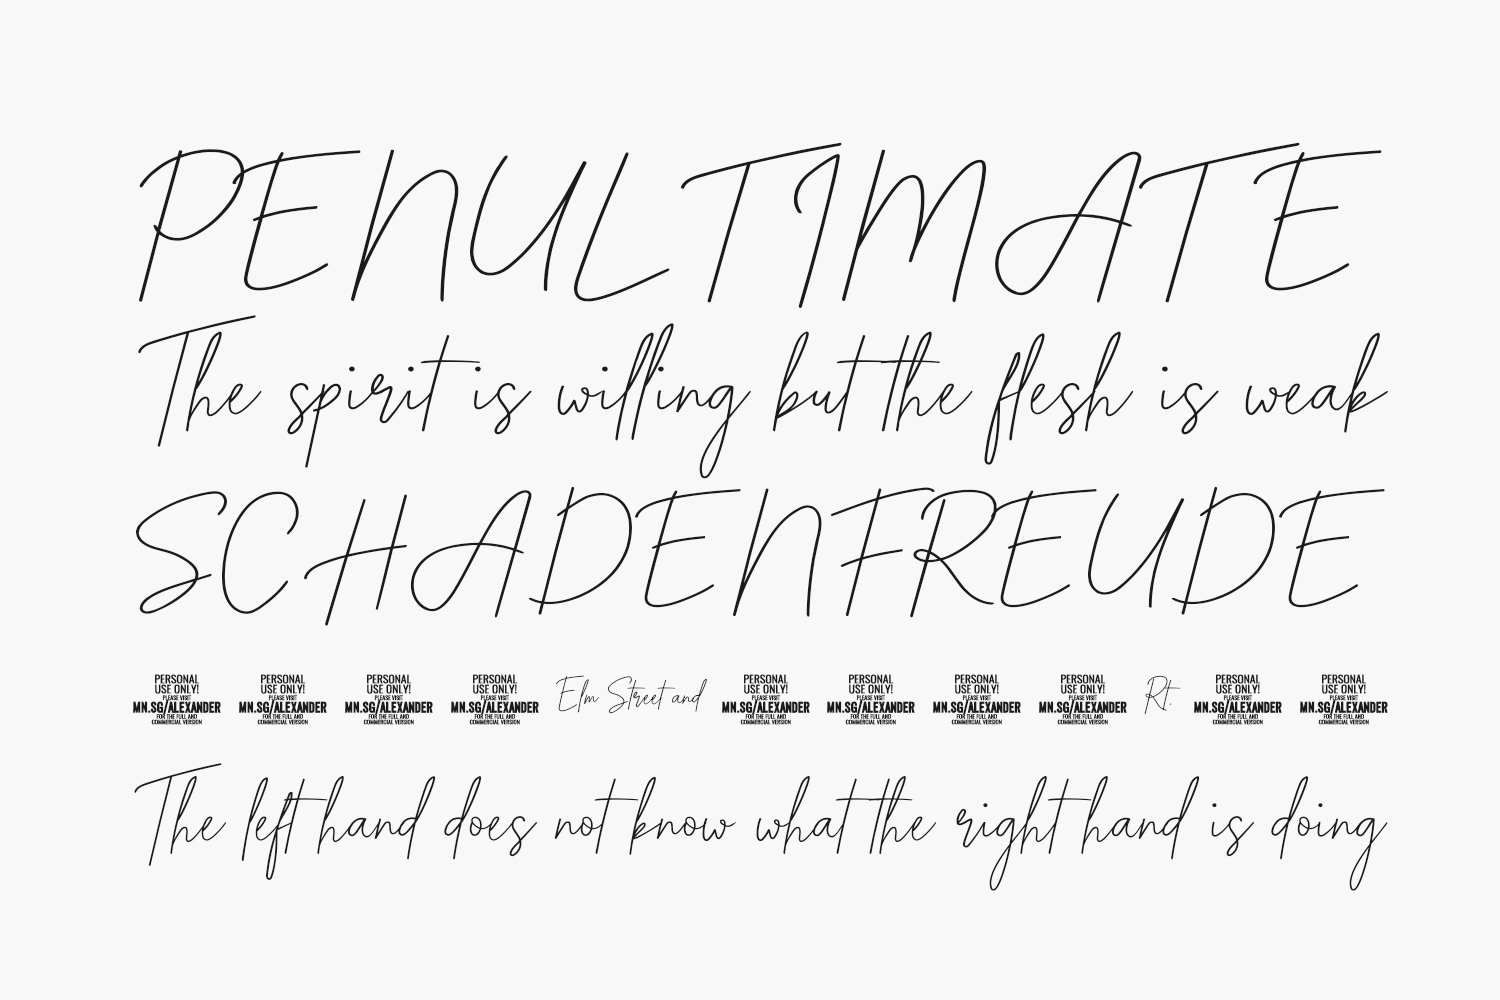 PENULTIMATE
The spirit is willing but the flesh is weak
SCHADENFREUDE
PERSONAL
USE ONLY!
PLEASE VISIT
MN.SG/ALEXANDER
FOR THE FULL AND
COMMERCIAL VERSION
PERSONAL
USE ONLY!
PLEASE VISIT
MN.SG/ALEXANDER
FOR THE FULL AND
COMMERCIAL VERSION
PERSONAL
USE ONLY!
PLEASE VISIT
MN.SG/ALEXANDER
FOR THE FULL AND
COMMERCIAL VERSION
PERSONAL
USE ONLY!
PLEASE VISIT
MN.SG/ALEXANDER
FOR THE FULL AND
COMMERCIAL VERSION
Elm Street and
PERSONAL
USE ONLY!
PLEASE VISIT
MN.SG/ALEXANDER
FOR THE FULL AND
COMMERCIAL VERSION
PERSONAL
USE ONLY!
PLEASE VISIT
MN.SG/ALEXANDER
FOR THE FULL AND
COMMERCIAL VERSION
PERSONAL
USE ONLY!
PLEASE VISIT
MN.SG/ALEXANDER
FOR THE FULL AND
COMMERCIAL VERSION
PERSONAL
USE ONLY!
PLEASE VISIT
MN.SG/ALEXANDER
FOR THE FULL AND
COMMERCIAL VERSION
Rt.
PERSONAL
USE ONLY!
PLEASE VISIT
MN.SG/ALEXANDER
FOR THE FULL AND
COMMERCIAL VERSION
PERSONAL
USE ONLY!
PLEASE VISIT
MN.SG/ALEXANDER
FOR THE FULL AND
COMMERCIAL VERSION
The left hand does not know what the right hand is doing